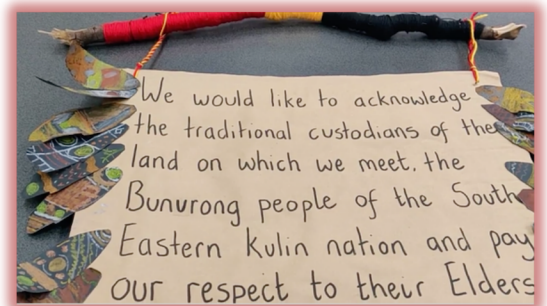 We would like to acknowledge
the traditional custodians of the
land on which we meet, the
Bunurong people of the South
Eastern Kulin nation and pay
our respect to their Elders